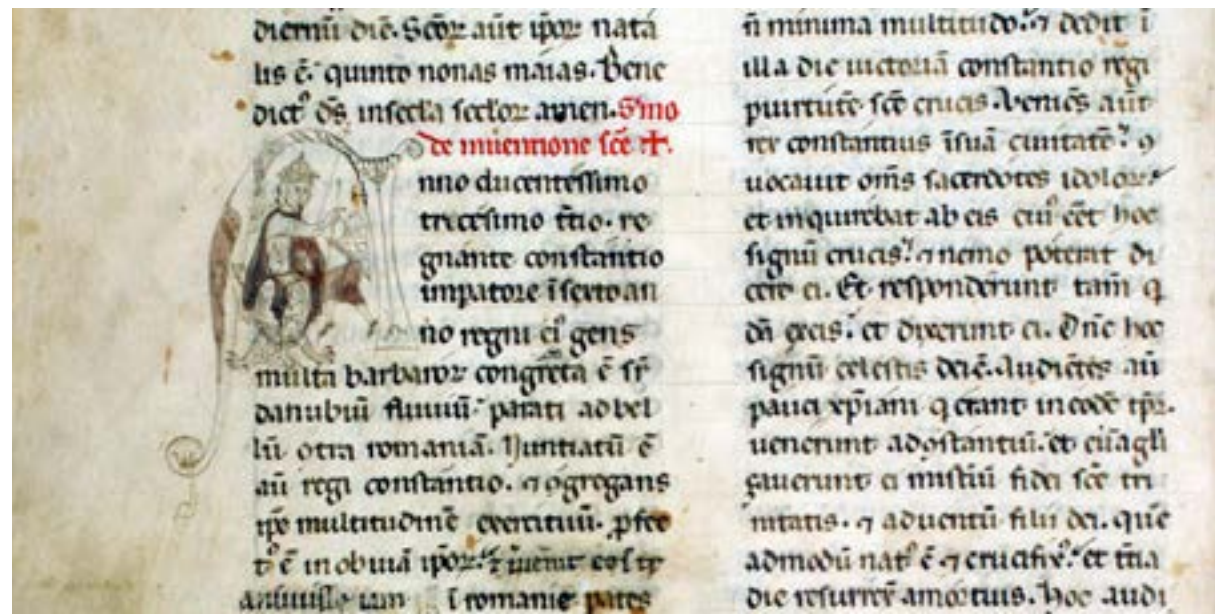 diernū diē. Scōꝝ aūt ip̄oꝝ nata
lis ē. quinto nonas maias. Bene
dictꝰ d̄s in secl̄a secl̄oꝝ amen. S̄mo
de inuentione sc̄e ✝.
nno ducentessimo
tricesimo t̄tio. re
gnante constantio
impatore ī sexto an
no regni eiꝰ gens
multa barbaroꝝ cong̃ta ē sr̄
danubiū fluuiū. parati ad bel
lū ꝯtra romaniā. Nuntiatū ē
aū regi constantio. ⁊ ꝯgregans
ip̄e multitudinē exercituū. ꝓfec
tꝰ ē in obuiā ip̄oꝝ. ⁊ īuenit eos
ī romanie pates
n̄ minima multitudo. ⁊ dedit ī
illa die uictoriā constantio regi
p uirtutē sc̄e crucis. Veniēs aūt
rex constantius ī suā ciuitatē. ⁊
uocauit om̄s sacerdotes idoloꝝ
et inquirebat ab eis cuiꝰ eēt hoc
signū crucis. ⁊ nemo poterat di
cere ei. Et responderunt tam̄ q
dā ex eis. et dixerunt ei. Dn̄e hoc
signū celestis dei ē. Audiētes aū
pauci xp̄iani q erant in eodē tp̄r.
uenerunt ad ꝯstantiū. et euāgli
çauerunt ei mistiū fidei sc̄e tri
nitatis. ⁊ aduentū filii dei. quē
admodū natꝰ ē ⁊ crucifixꝰ. et t̄tia
die resurrex̄ a mortuis. Hoc audi